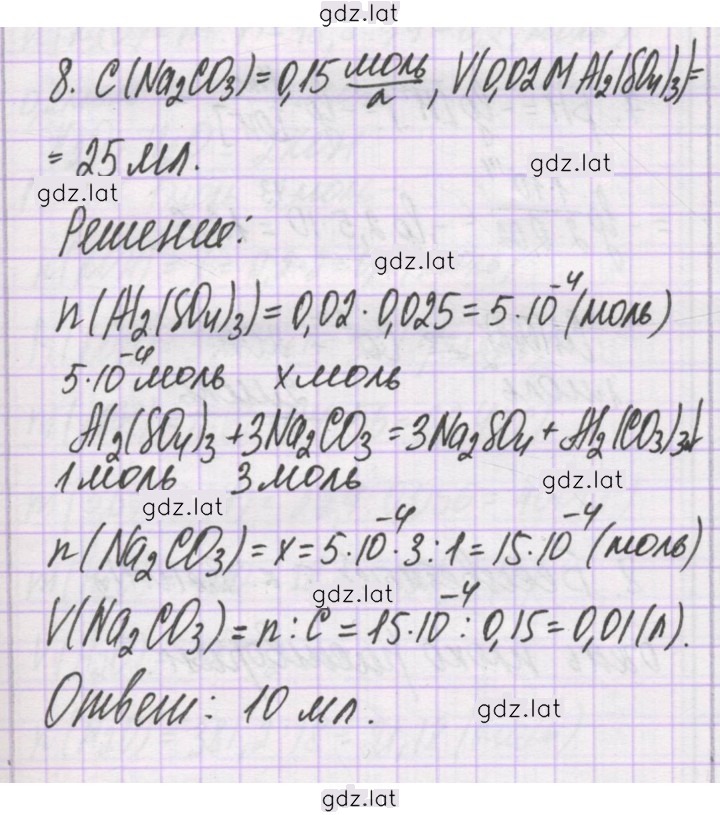 gdz.lat
8. C(Na₂CO₃) = 0,15 моль/л, V(0,02М Al₂(SO₄)₃) =
= 25 мл.
gdz.lat
gdz.lat
Решение:
gdz.lat
n(Al₂(SO₄)₃) = 0,02 · 0,025 = 5 · 10⁻⁴ (моль)
5 · 10⁻⁴ моль x моль
Al₂(SO₄)₃ + 3Na₂CO₃ = 3Na₂SO₄ + Al₂(CO₃)₃↓
1 моль 3 моль
gdz.lat
gdz.lat
n(Na₂CO₃) = x = 5 · 10⁻⁴ · 3 : 1 = 15 · 10⁻⁴ (моль)
gdz.lat
V(Na₂CO₃) = n : C = 15 · 10⁻⁴ : 0,15 = 0,01 (л).
Ответ: 10 мл.
gdz.lat
gdz.lat